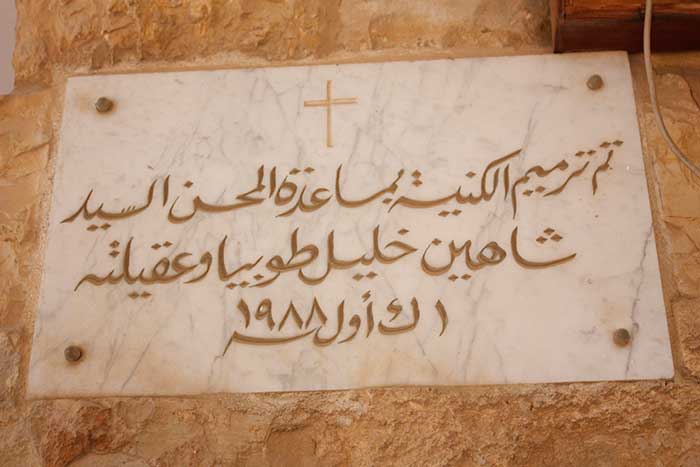 تم ترميم الكنيسة بمساعدة المحسن السيد
شاهين خليل طوبيا وعقيلته
١ ك أول ١٩٨٨